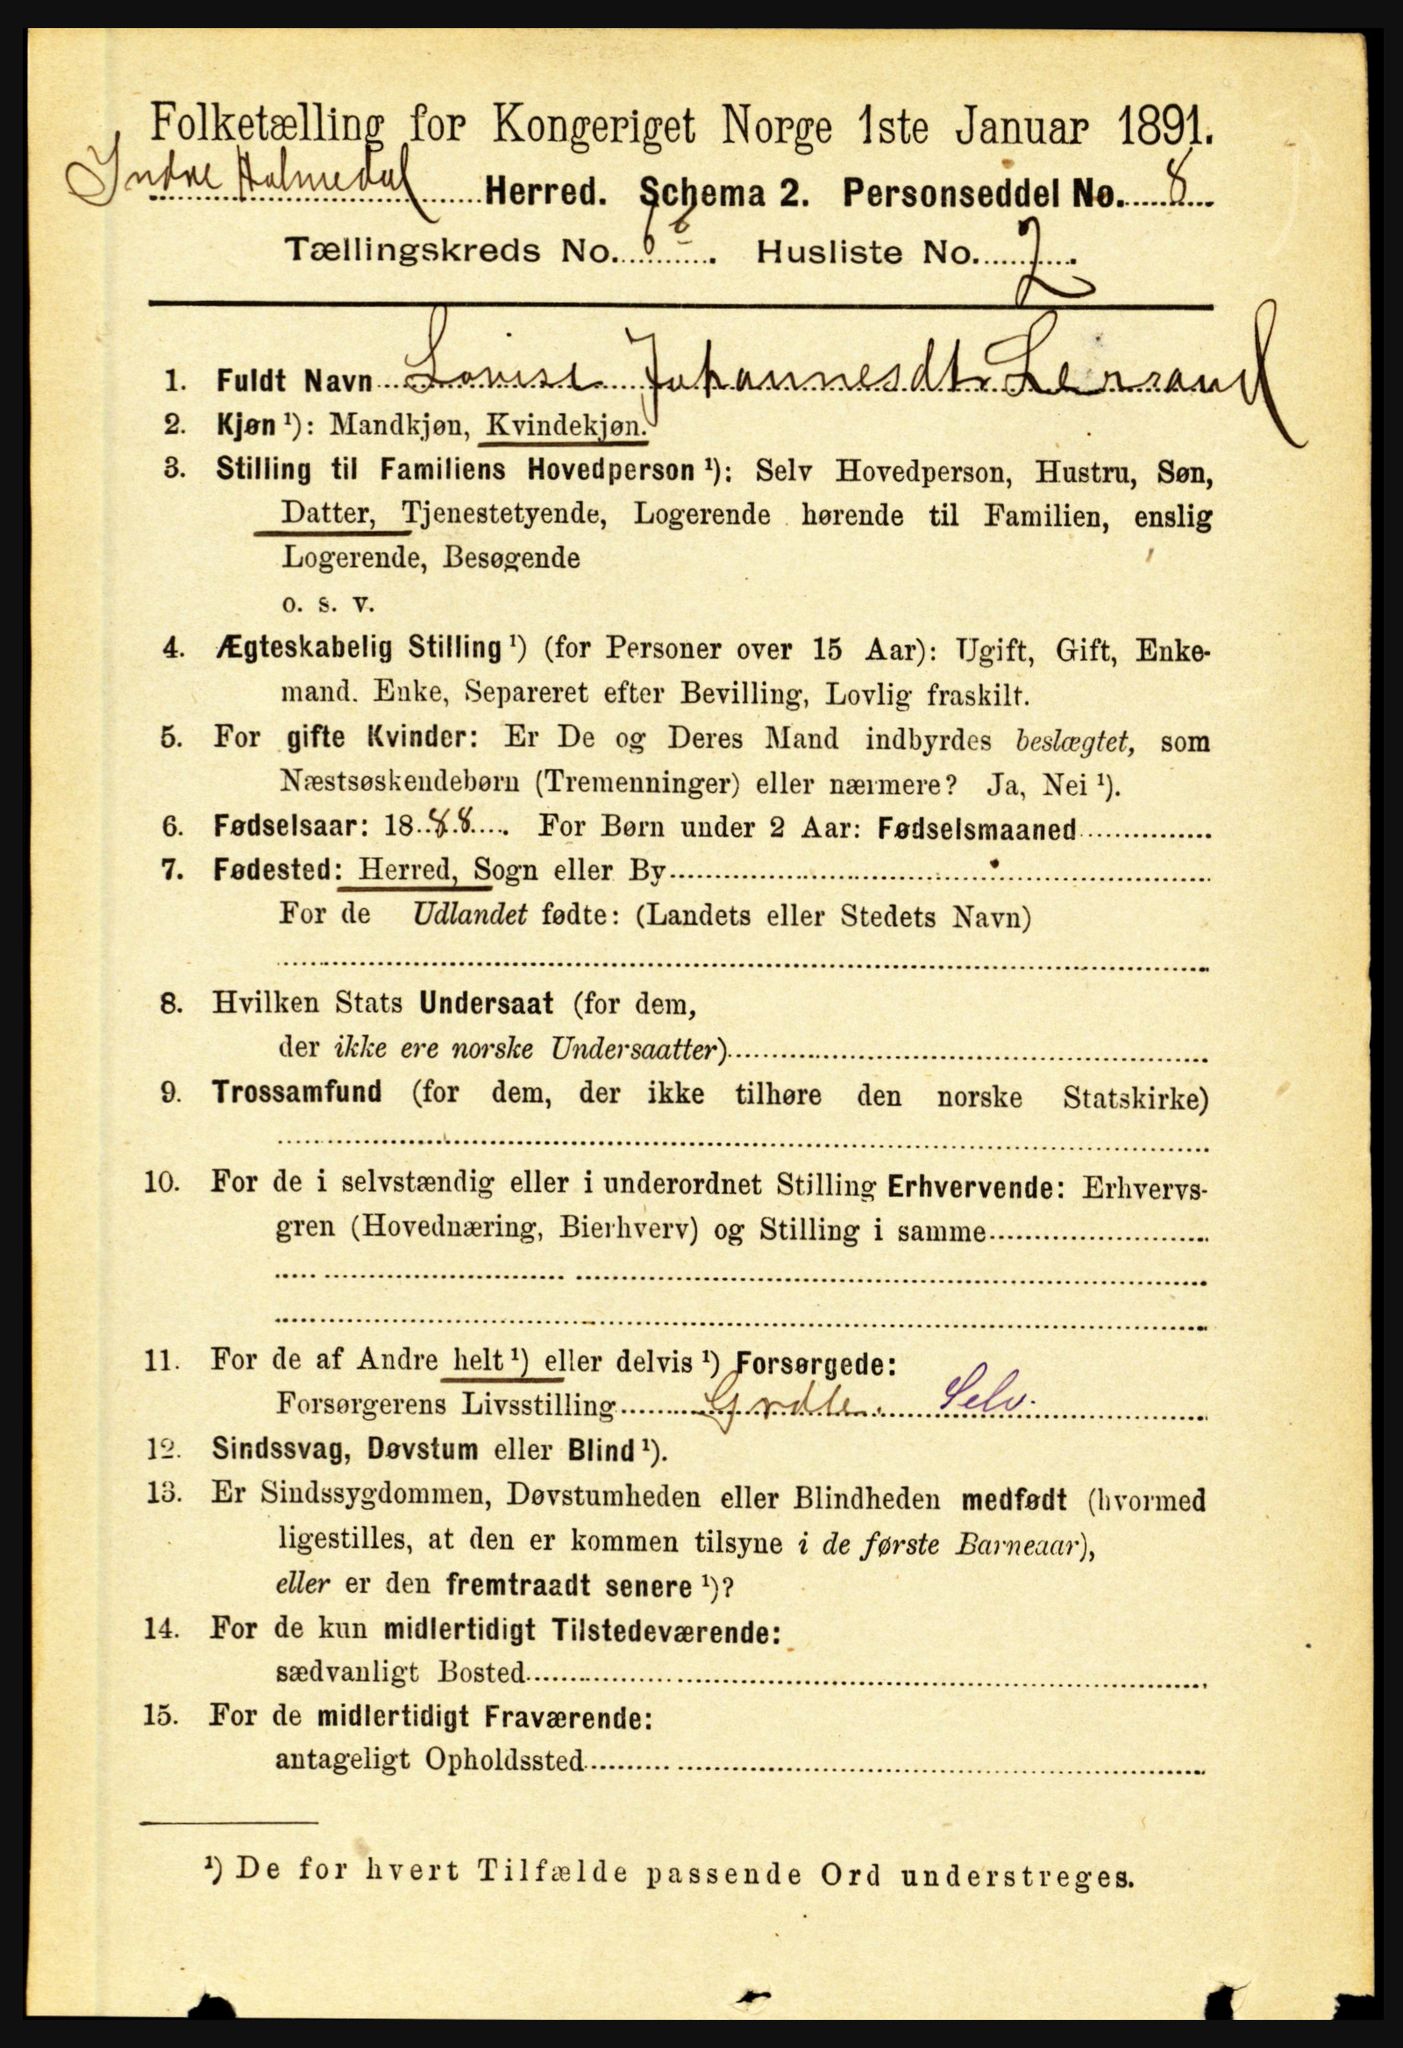 Folketælling for Kongeriget Norge 1ste Januar 1891.
Indre Holmedal Herred. Schema 2. Personseddel No. 8
Tællingskreds No. 6. Husliste No. 2.
1. Fuldt Navn Lovise Johannesdt.
2. Kjøn ¹): Mandkjøn, Kvindekjøn.
3. Stilling til Familiens Hovedperson ¹): Selv Hovedperson, Hustru, Søn,
Datter, Tjenestetyende, Logerende hørende til Familien, enslig
Logerende, Besøgende
o. s. v.
4. Ægteskabelig Stilling ¹) (for Personer over 15 Aar): Ugift, Gift, Enke-
mand. Enke, Separeret efter Bevilling, Lovlig fraskilt.
5. For gifte Kvinder: Er De og Deres Mand indbyrdes beslægtet, som
Næstsøskendebørn (Tremenninger) eller nærmere? Ja, Nei ¹).
6. Fødselsaar: 1888. For Børn under 2 Aar: Fødselsmaaned
7. Fødested: Herred, Sogn eller By
For de Udlandet fødte: (Landets eller Stedets Navn)
8. Hvilken Stats Undersaat (for dem,
der ikke ere norske Undersaatter)
9. Trossamfund (for dem, der ikke tilhøre den norske Statskirke)
10. For de i selvstændig eller i underordnet Stilling Erhvervende: Erhvervs-
gren (Hovednæring, Bierhverv) og Stilling i samme
11. For de af Andre helt ¹) eller delvis ¹) Forsørgede:
Forsørgerens Livsstilling Selv.
12. Sindssvag, Døvstum eller Blind ¹).
13. Er Sindssygdommen, Døvstumheden eller Blindheden medfødt (hvormed
ligestilles, at den er kommen tilsyne i de første Barneaar),
eller er den fremtraadt senere ¹)?
14. For de kun midlertidigt Tilstedeværende:
sædvanligt Bosted
15. For de midlertidigt Fraværende:
antageligt Opholdssted
¹) De for hvert Tilfælde passende Ord understreges.